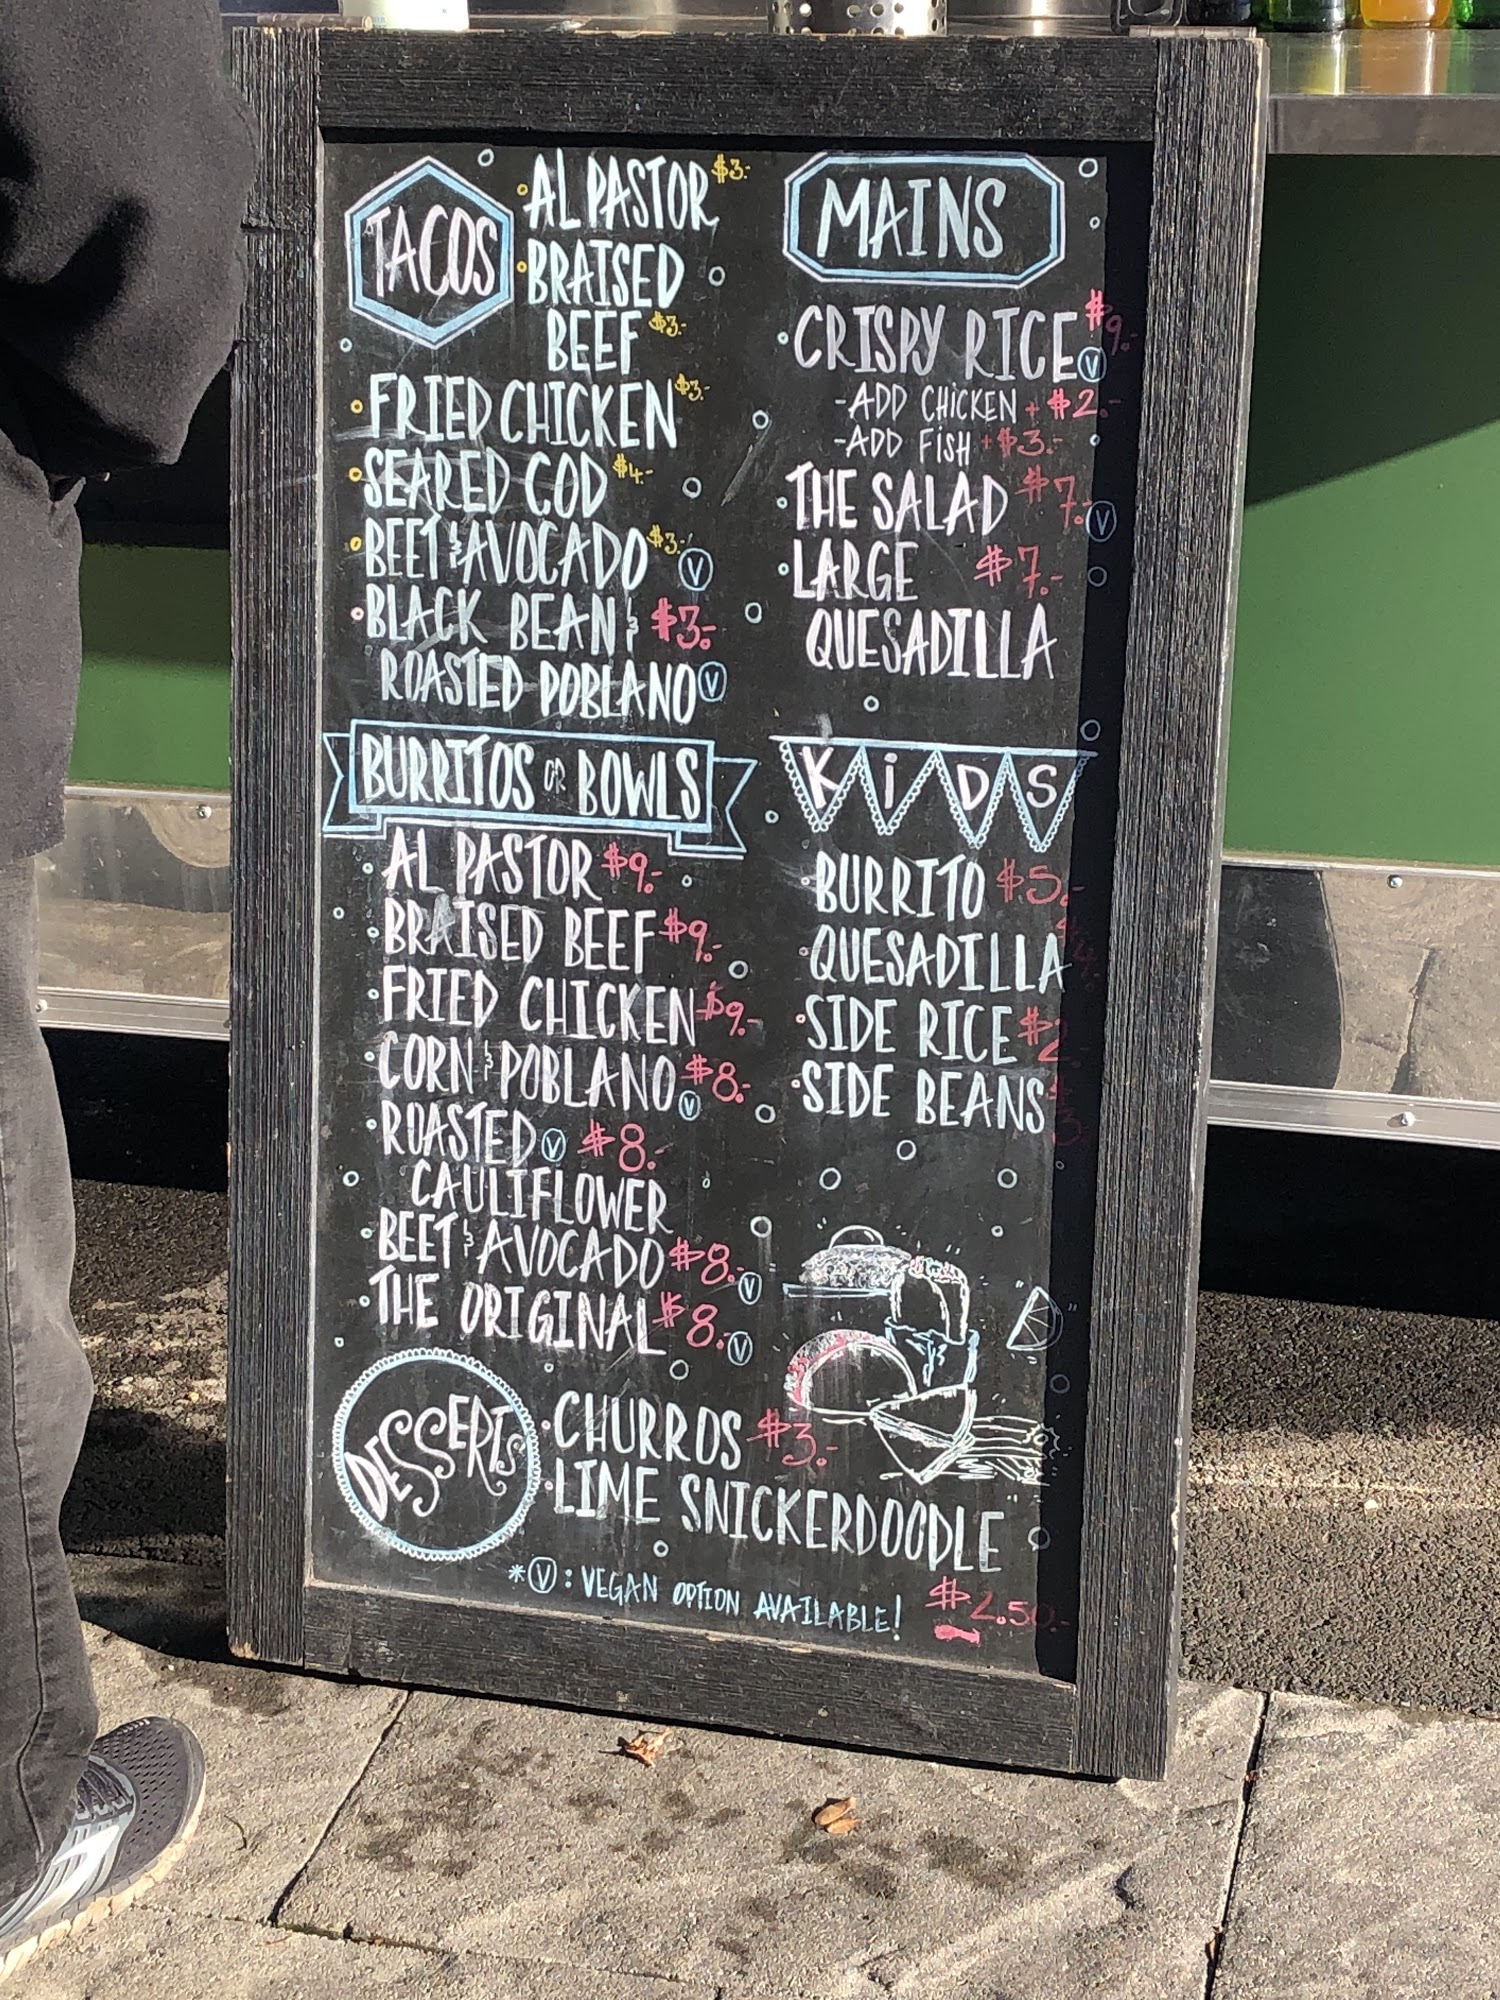 TACOS
AL PASTOR $3.-
BRAISED
BEEF $3.-
FRIED CHICKEN $3.-
SEARED COD $4.-
BEET & AVOCADO $3.- V
BLACK BEAN & $3.-
ROASTED POBLANO V
BURRITOS OR BOWLS
AL PASTOR $9.-
BRAISED BEEF $9.-
FRIED CHICKEN $9.-
CORN & POBLANO $8.- V
ROASTED V $8.-
CAULIFLOWER
BEET & AVOCADO $8.- V
THE ORIGINAL $8.- V
MAINS
CRISPY RICE $9.- V
-ADD CHICKEN + $2.-
-ADD FISH + $3.-
THE SALAD $7.- V
LARGE $7.-
QUESADILLA
KiDS
BURRITO $5.-
QUESADILLA $4.-
SIDE RICE $2.-
SIDE BEANS $3.
DESSERTS
CHURROS $3.-
LIME SNICKERDOODLE
$2.50.-
*V : VEGAN OPTION AVAILABLE!